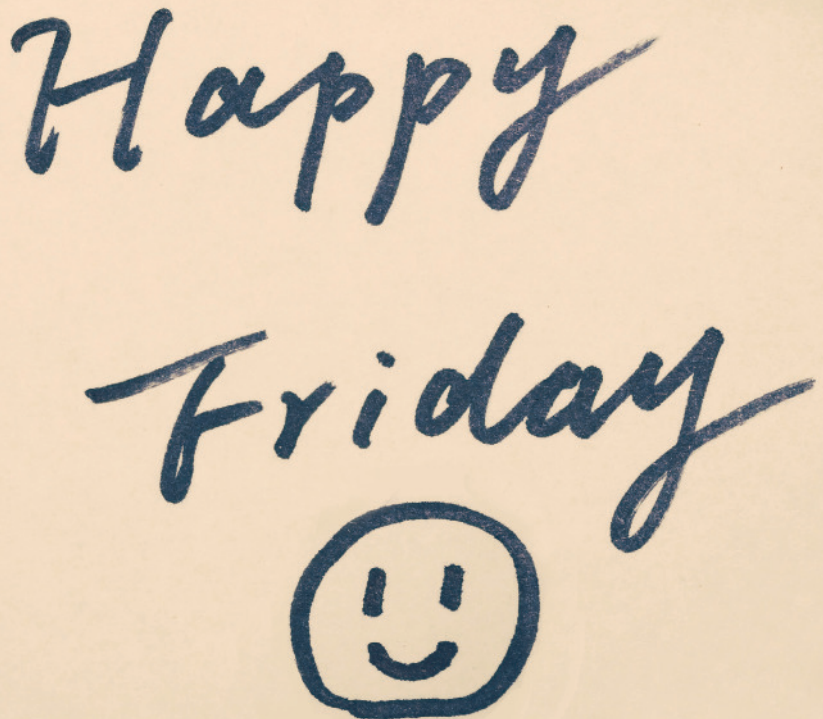 Happy
Friday